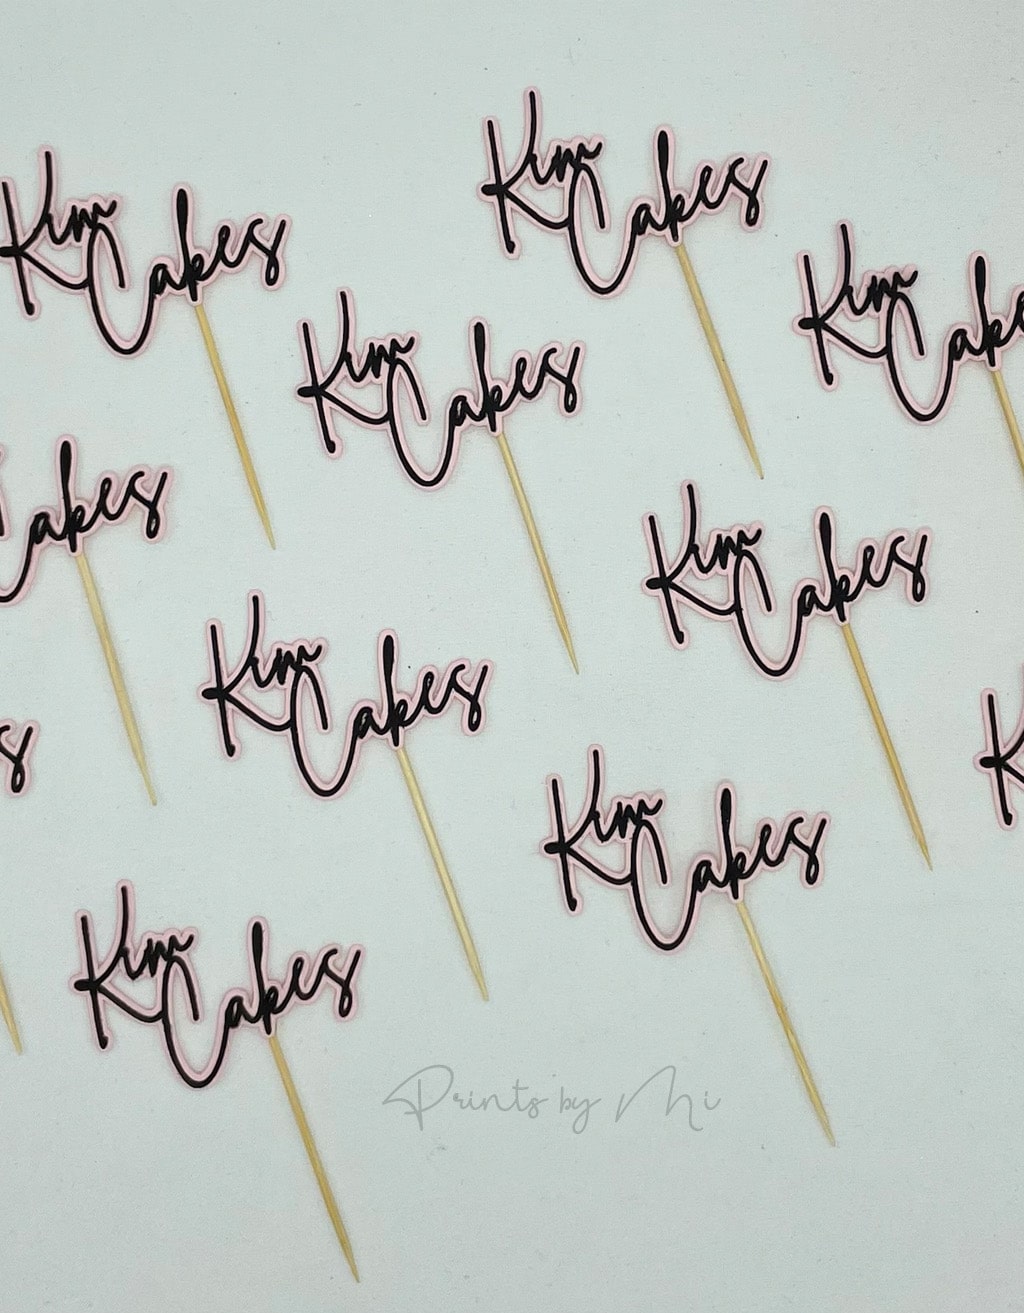 Kim
Cakes
Kim
Cakes
Kim
Cakes
Kim
Cakes
Cakes
Kim
Cakes
Kim
Cakes
s
K
Kim
Cakes
Kim
Cakes
Prints by Mi